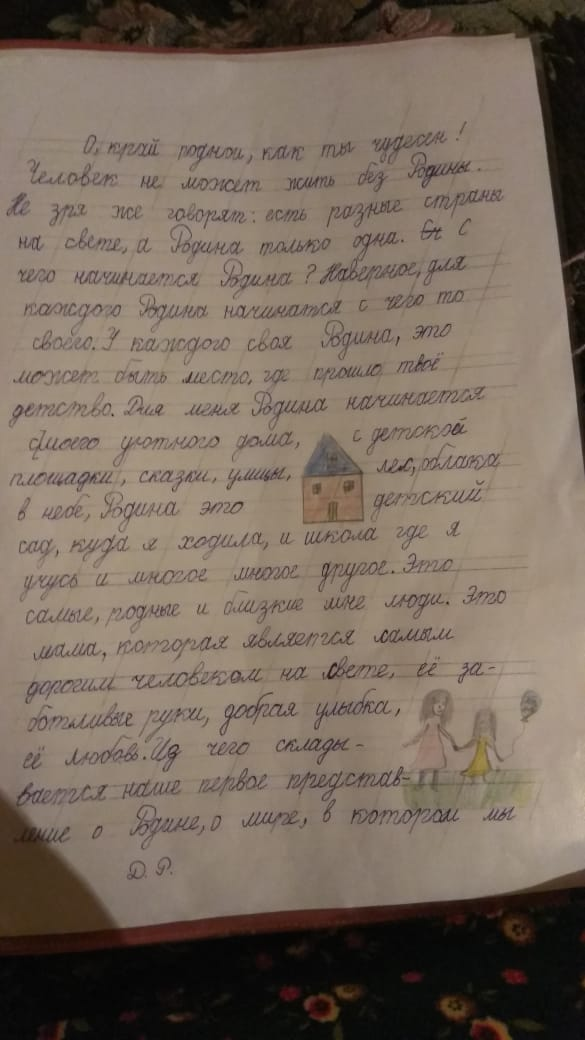 О, край родной, как ты чудесен!
Человек не может жить без Родины.
Не зря же говорят: есть разные страны
на свете, а Родина только одна. С
чего начинается Родина? Наверное, для
каждого Родина начинатся с чего то
своего. У каждого своя Родина, это
может быть место, где прошло твоё
детство. Для меня Родина начинается
с моего уютного дома, с детской
площадки, сказки, улицы, лес, облака
в небе, Родина это детский
сад, куда я ходила, и школа где я
учусь и многое многое другое. Это
самые, родные и близкие мне люди. Это
мама, которая является самым
дорогим человеком на свете, её за-
ботливые руки, добрая улыбка,
её любовь. Из чего склады-
вается наше первое представ-
ление о Родине, о мире, в котором мы
Д. Р.